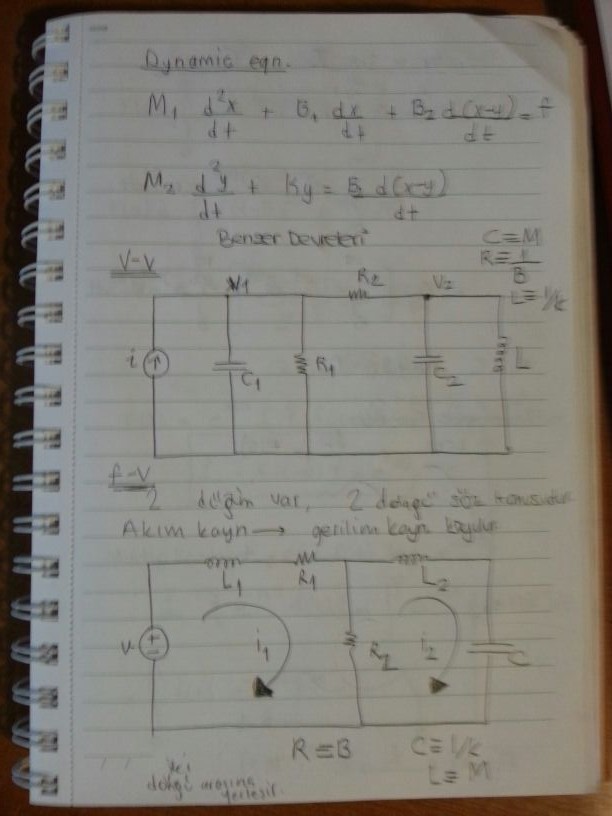 Dynamic eqn.
M1 d²x/dt + B1 dx/dt + B2 d(x-y)/dt = f
M2 d²y/dt + Ky = B2 d(x-y)/dt
Benzer Devreleri
C≡M
R≡1/B
L≡1/k
V-V
V1 R2 V2
i C1 R1 C2 L
f-V
2 düğüm var, 2 döngü söz konusudur
Akım kayn → gerilim kayn koyulur
L1 R1 L2
v i1 R2 i2 C
R≡B C≡1/k
L≡M
iki
döngü arasına
yerleşir.